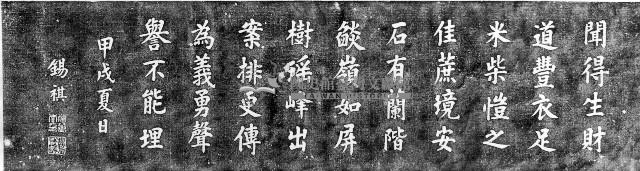 聞得生財
道豐衣足
米柴愷之
佳蔗境安
石有蘭階
燄嶺如屏
樹瑤峰出
案排史傳
為義勇聲
譽不能埋
甲戌夏日
錫祺